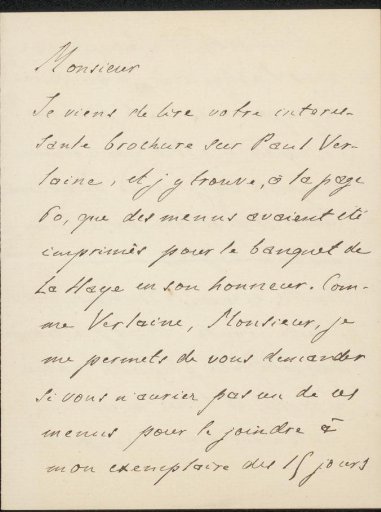 Monsieur
Je viens de lire votre interes-
sante brochure sur Paul Ver-
laine, et j'y trouve, à la page
60, que des menus avaient été
imprimés pour le banquet de
La Haye en son honneur. Com-
me Verlaine, Monsieur, je
me permets de vous demander
si vous n'auriez pas un de ces
menus pour le joindre à
mon exemplaire des 15 jours